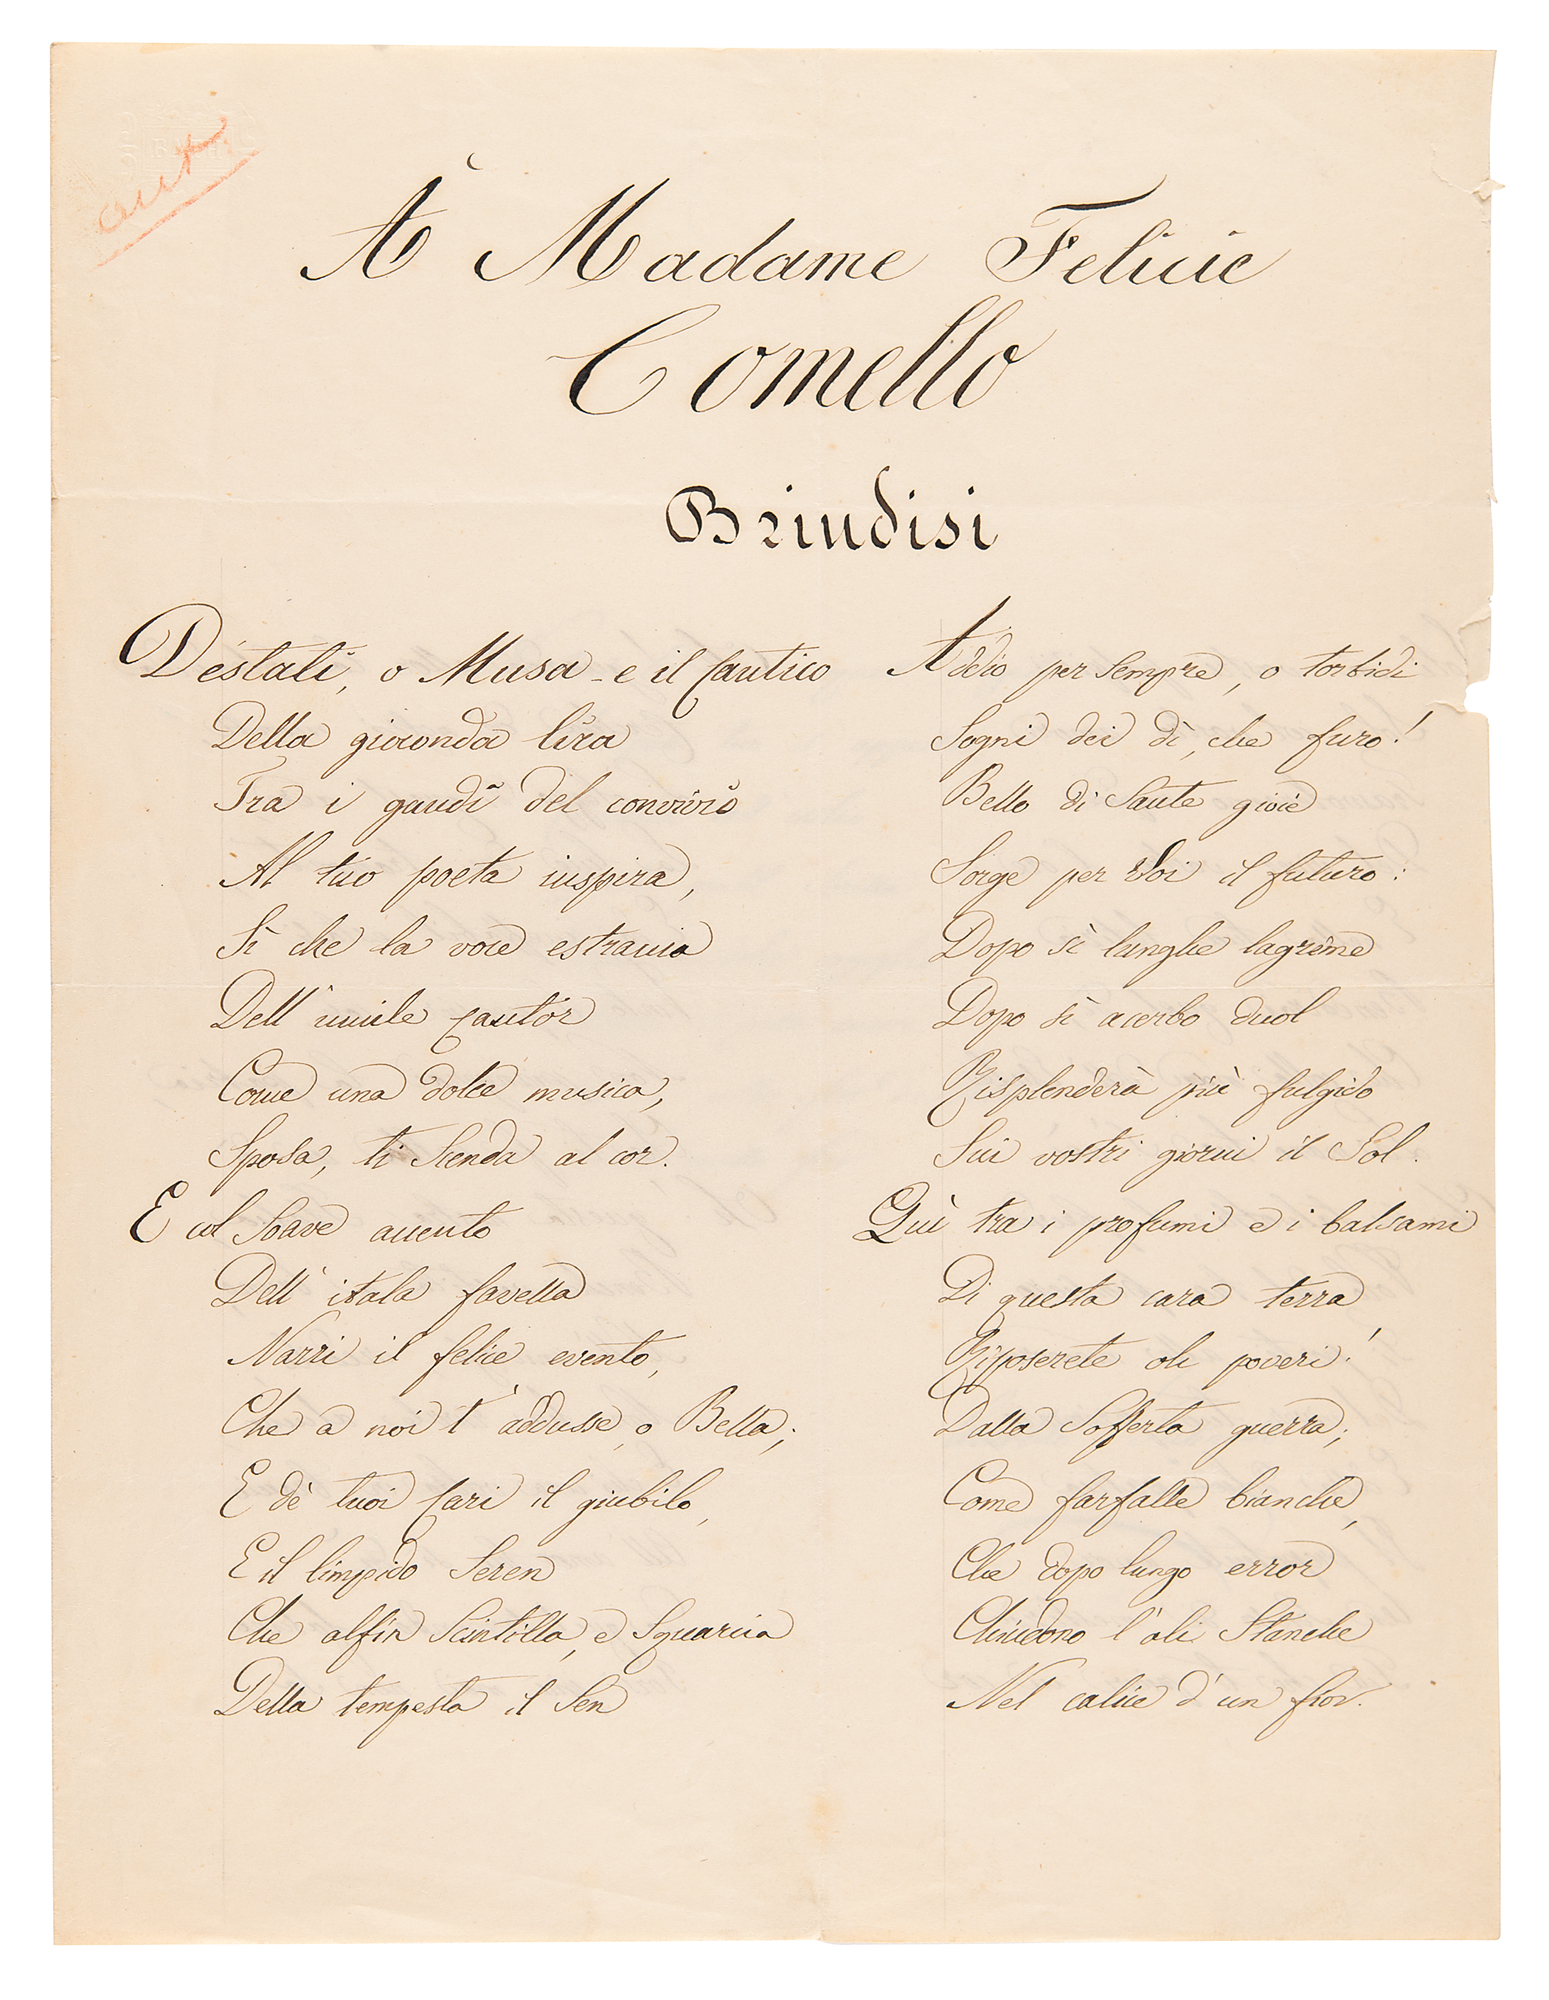 aut
À Madame Felicie
Comello
Brindisi
Déstati, o Musa - e il Cantico
Della gioconda lira
Tra i gaudî del convivio
Al tuo poeta inspira,
Sì che la voce estrania
Dell' umile Cantor
Come una dolce musica,
Sposa, ti Scenda al cor.
E col Soave accento
Dell' itala favella
Narri il felice evento,
Che a noi t' addusse, o Bella;
E dè tuoi Cari il giubilo,
E il limpido Seren
Che alfin Scintilla, e Squarcia
Della tempesta il Sen
Addio per Sempre, o torbidi
Sogni dei dì, che furo!
Bello di Sante gioie
Sorge per Voi il futuro:
Dopo sì lunghe lagrime
Dopo sì acerbo duol
Risplenderà più fulgido
Sui vostri giorni il Sol.
Quì tra i profumi e i balsami
Di questa cara terra
Riposerete oh poveri!
Dalla Sofferta guerra;
Come farfalle bianche,
Che dopo lungo error
Chiudono l' ali Stanche
Nel calice d' un fior.